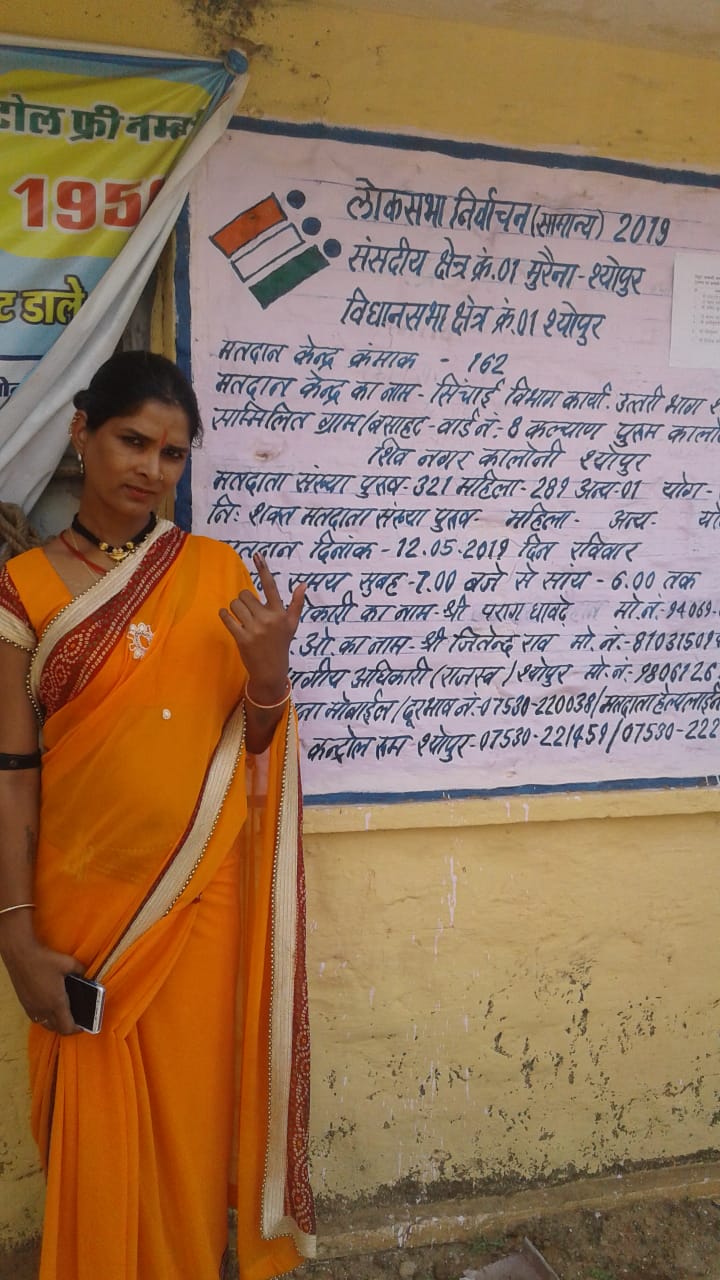 टोल फ्री नम्ब
195
डाले
लोकसभा निर्वाचन (सामान्य) 2019
संसदीय क्षेत्र क्रं.01 मुरैना-श्योपुर
विधानसभा क्षेत्र क्रं.01 श्योपुर
मतदान केन्द्र क्रंमाक - 162
मतदान केन्द्र का नाम- सिंचाई विभाग कार्या. उत्तरी भाग
सम्मिलित ग्राम/बसाहट-वार्ड नं.-8 कल्याण पुरूम कालो
शिव नगर कालोनी श्योपुर
मतदाता संख्या पुरूष-321 महिला-289 अन्य-01 योग-
नि: शक्त मतदाता संख्या पुरूष- महिला- अन्य-
मतदान दिनांक-12.05.2019 दिन रविवार
समय सुबह-7.00 बजे से सांय-6.00 तक
कारी का नाम-श्री पराग धावदे मो.नं.-94069-
.ओ.का नाम-श्री जितेन्द्र राव मो. नं.-81031509
अधिकारी (राजस्व) श्योपुर मो.नं.-9806126
मोबाईल/दूरभाष नं:07530-220038/मतदाता हेल्पलाईन
कन्ट्रोल रूम श्योपुर-07530-221459/07530-222